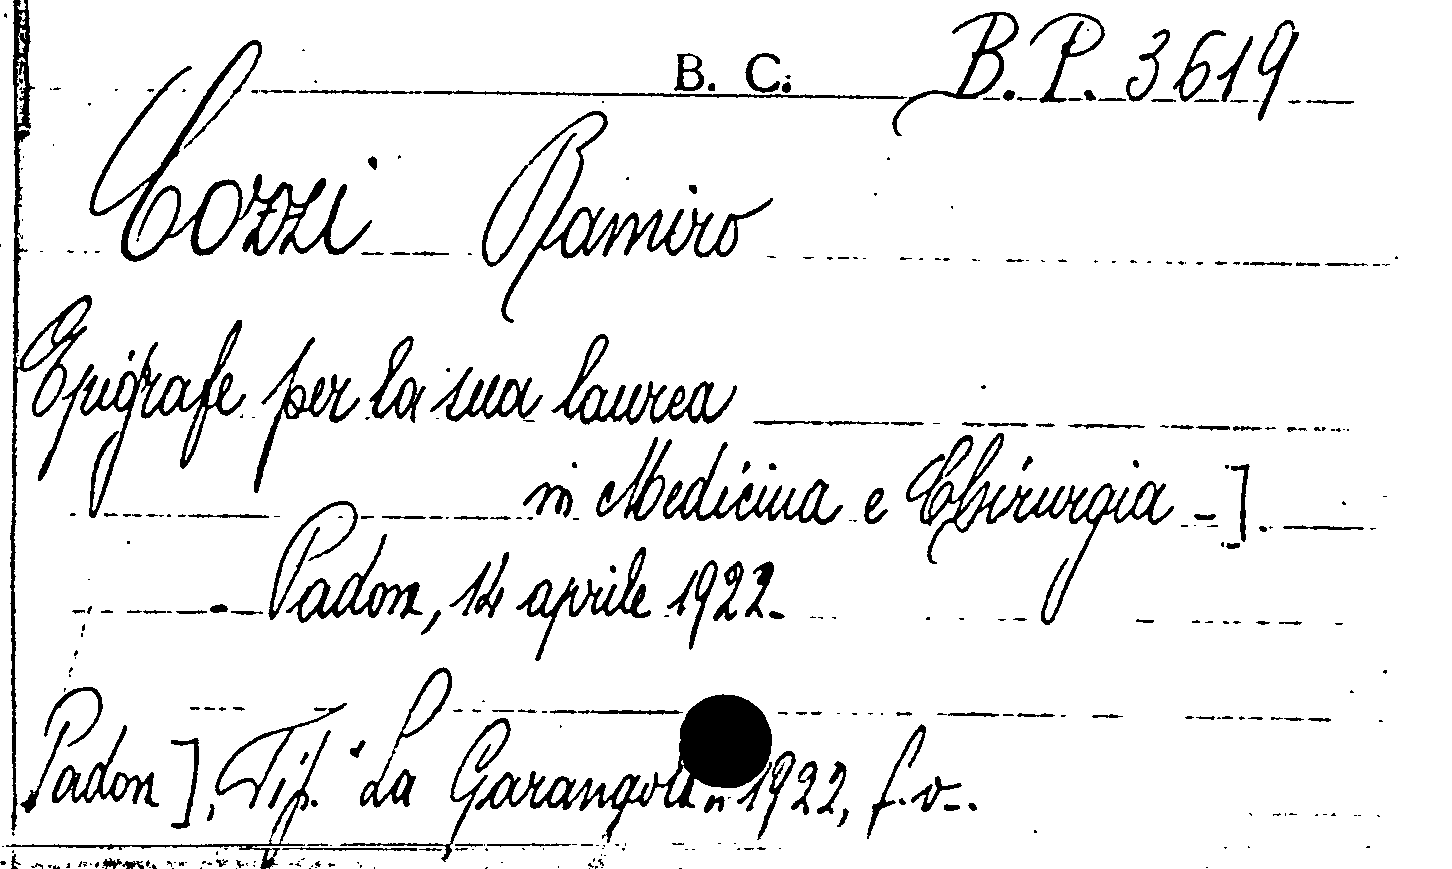 B. C. B. P. 3619
Cozzi Ramiro
Epigrafe per la sua laurea
in Medicina e Chirurgia -].
Padova, 14 aprile 1922.
Padova], Tip. "La Garangola" 1922, f. v-.